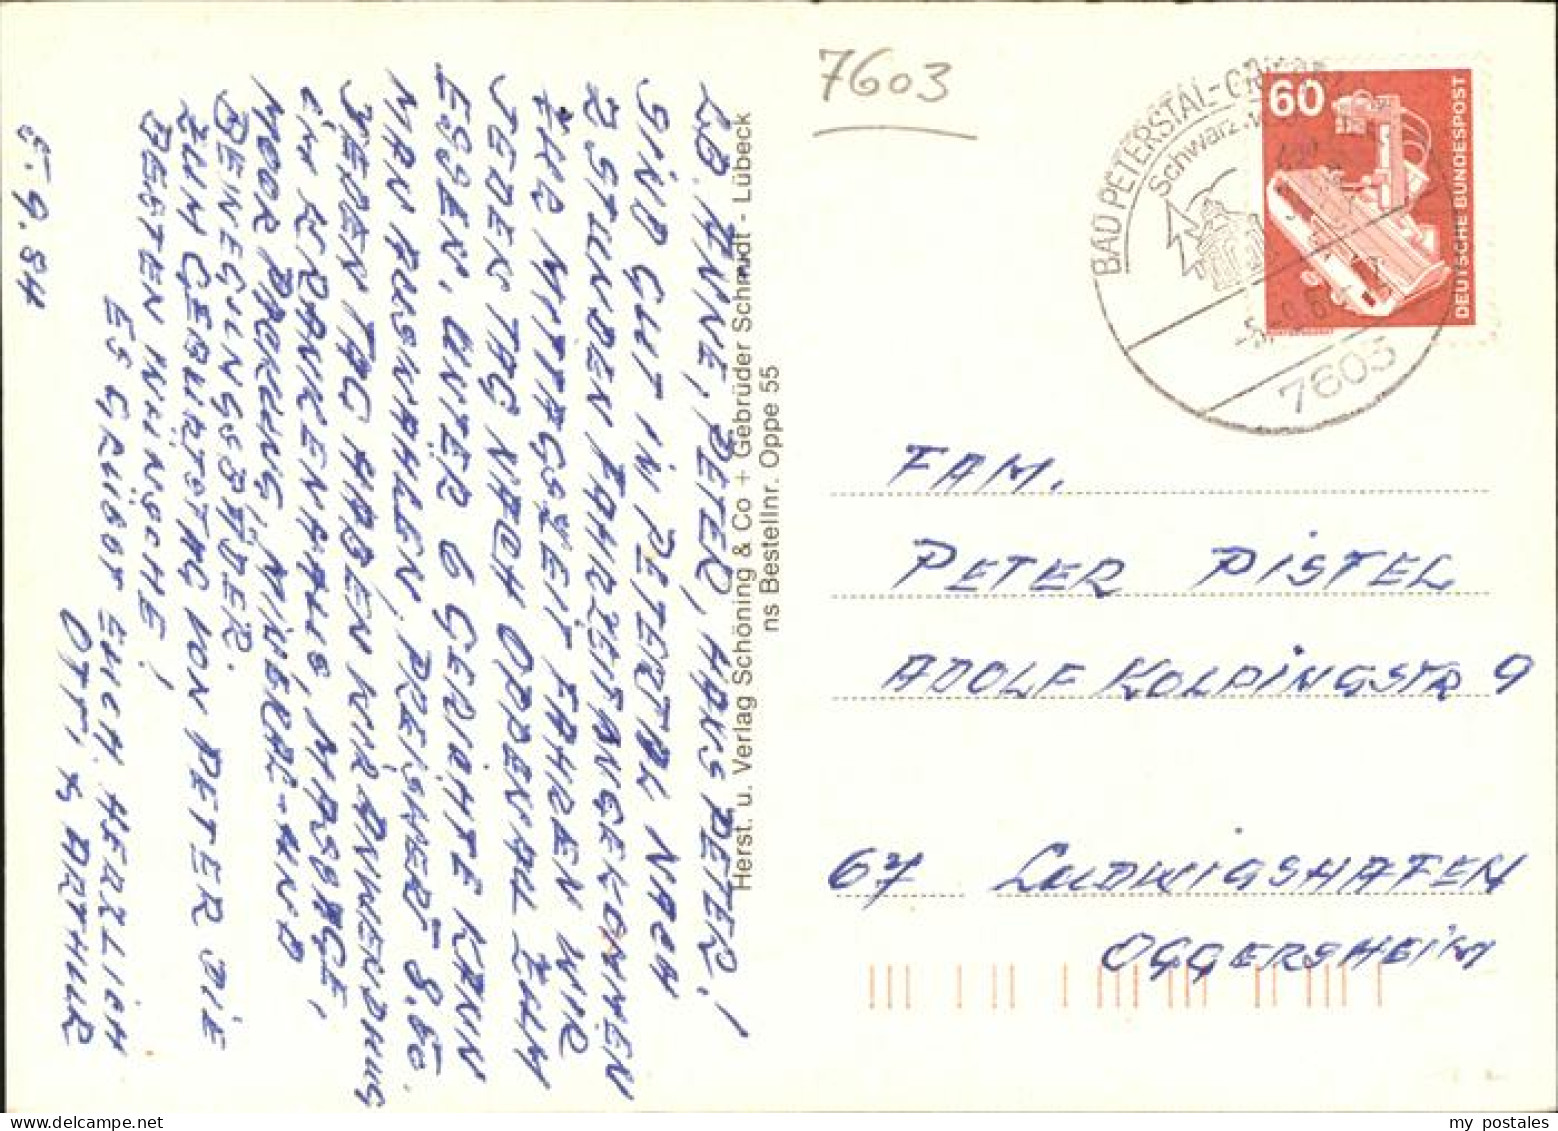 LB. ANNE, PETER, HANS PETER!
SIND GUT IN PETERTAL NACH
2 STUNDEN FAHRZEIT ANGEKOMMEN
ZUR MITTAGSZEIT FAHREN WIR
JEDEN TAG NACH OPPENAU ZUM
ESSEN, UNTER 6 GERICHTE KANN
MAN AUSWAHLEN, PREISWERT 8.50.
JEDEN TAG HABEN WIR ANWENDUNG
IM KRANKENHAUS, MASSAGE,
MOOR PACKUNG, MINERAL- UND
BEWEGUNGSBÄDER.
ZUM GEBURTSTAG VON PETER DIE
BESTEN WÜNSCHE!
ES GRÜSST EUCH HERZLICH
OTTI & ARTHUR
5.9.84
Herst. u. Verlag Schöning & Co + Gebrüder Schmidt - Lübeck
ns Bestellnr. Oppe 55
7603
BAD PETERSTAL-
60
DEUTSCHE BUNDESPOST
7603
FAM.
PETER PISTEL
ADOLF KOLPINGSTR 9
67 LUDWIGSHAFEN
OGGERSHEIM
my postales